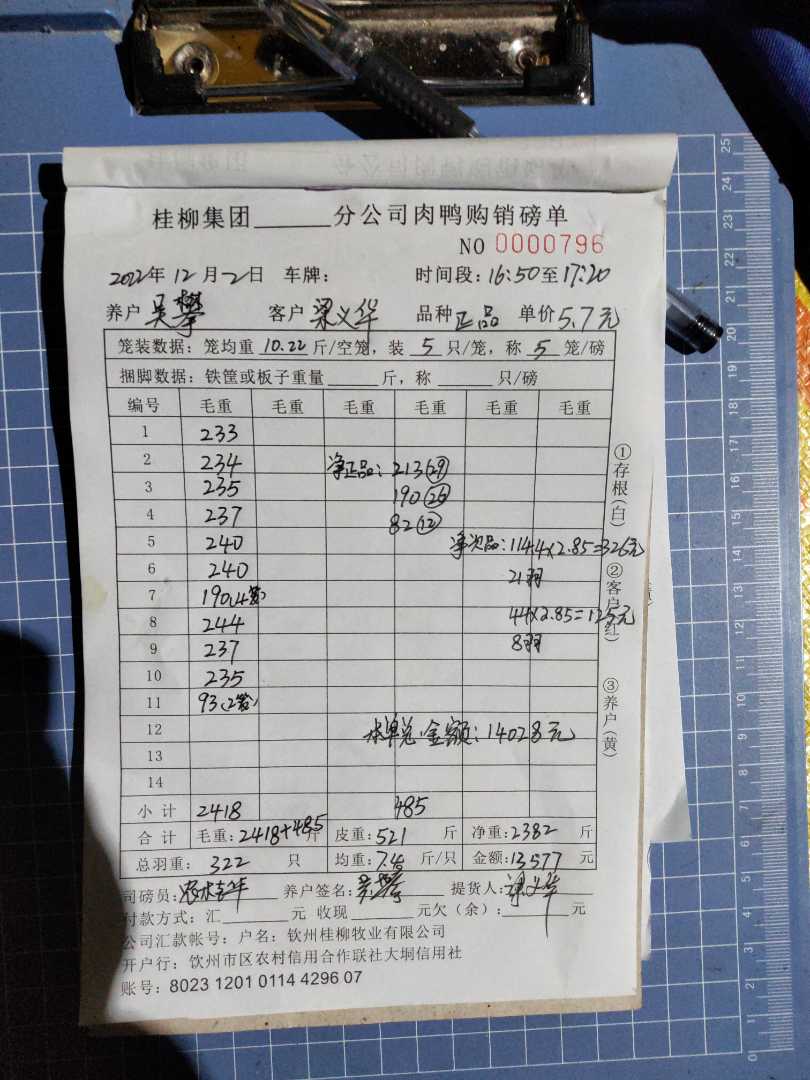 桂柳集团______分公司肉鸭购销磅单
NO 0000796
2022年12月2日 车牌: 时间段:16:50至17:20
养户 吴攀 客户 梁义华 品种 正品 单价5.7元
笼装数据:笼均重 10.22 斤/空笼,装 5 只/笼,称 5 笼/磅
捆脚数据:铁筐或板子重量______斤,称______只/磅
编号 毛重 毛重 毛重 毛重 毛重 毛重
1 233
2 234 净正品:213(29)
3 235 190(26)
4 237 82(12)
5 240 净次品:114斤×2.85=326元
6 240 21羽
7 190(4笼)
8 244 44×2.85=125元
9 237 8羽
10 235
11 93(2笼)
12 金额:14028元
13
14
小计 2418 485
合计 毛重:2418+485斤 皮重:521 斤 净重:2382 斤
总羽重: 322 只 均重:7.4 斤/只 金额:13577 元
司磅员: 养户签名:吴攀 提货人:梁义华
付款方式:汇______元 收现______元欠(余):______元
公司汇款帐号:户名:钦州桂柳牧业有限公司
开户行:钦州市区农村信用合作联社大垌信用社
账号:8023 1201 0114 4296 07
①存根(白)
②客户(红)
③养户(黄)
0 1 2 3 4 5 6 7 8 9 10 11 12 13 14 15 16 17 18 19 20 21 22 23 24 25